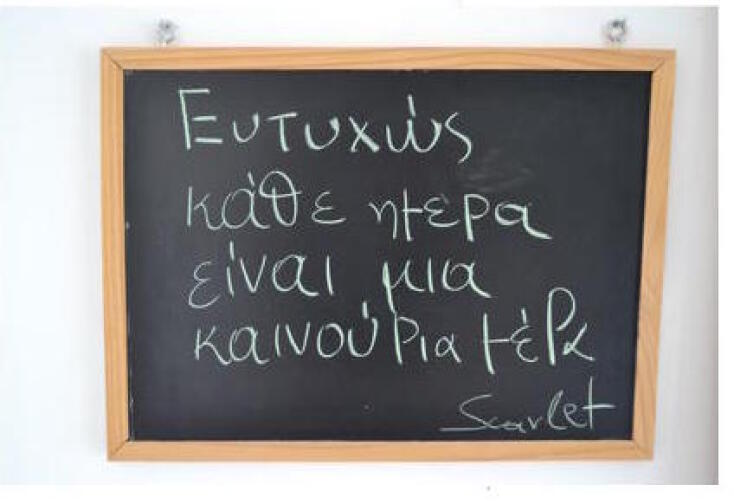 Ευτυχώς
κάθε ημέρα
είναι μια
καινούρια μέρα
Scarlet